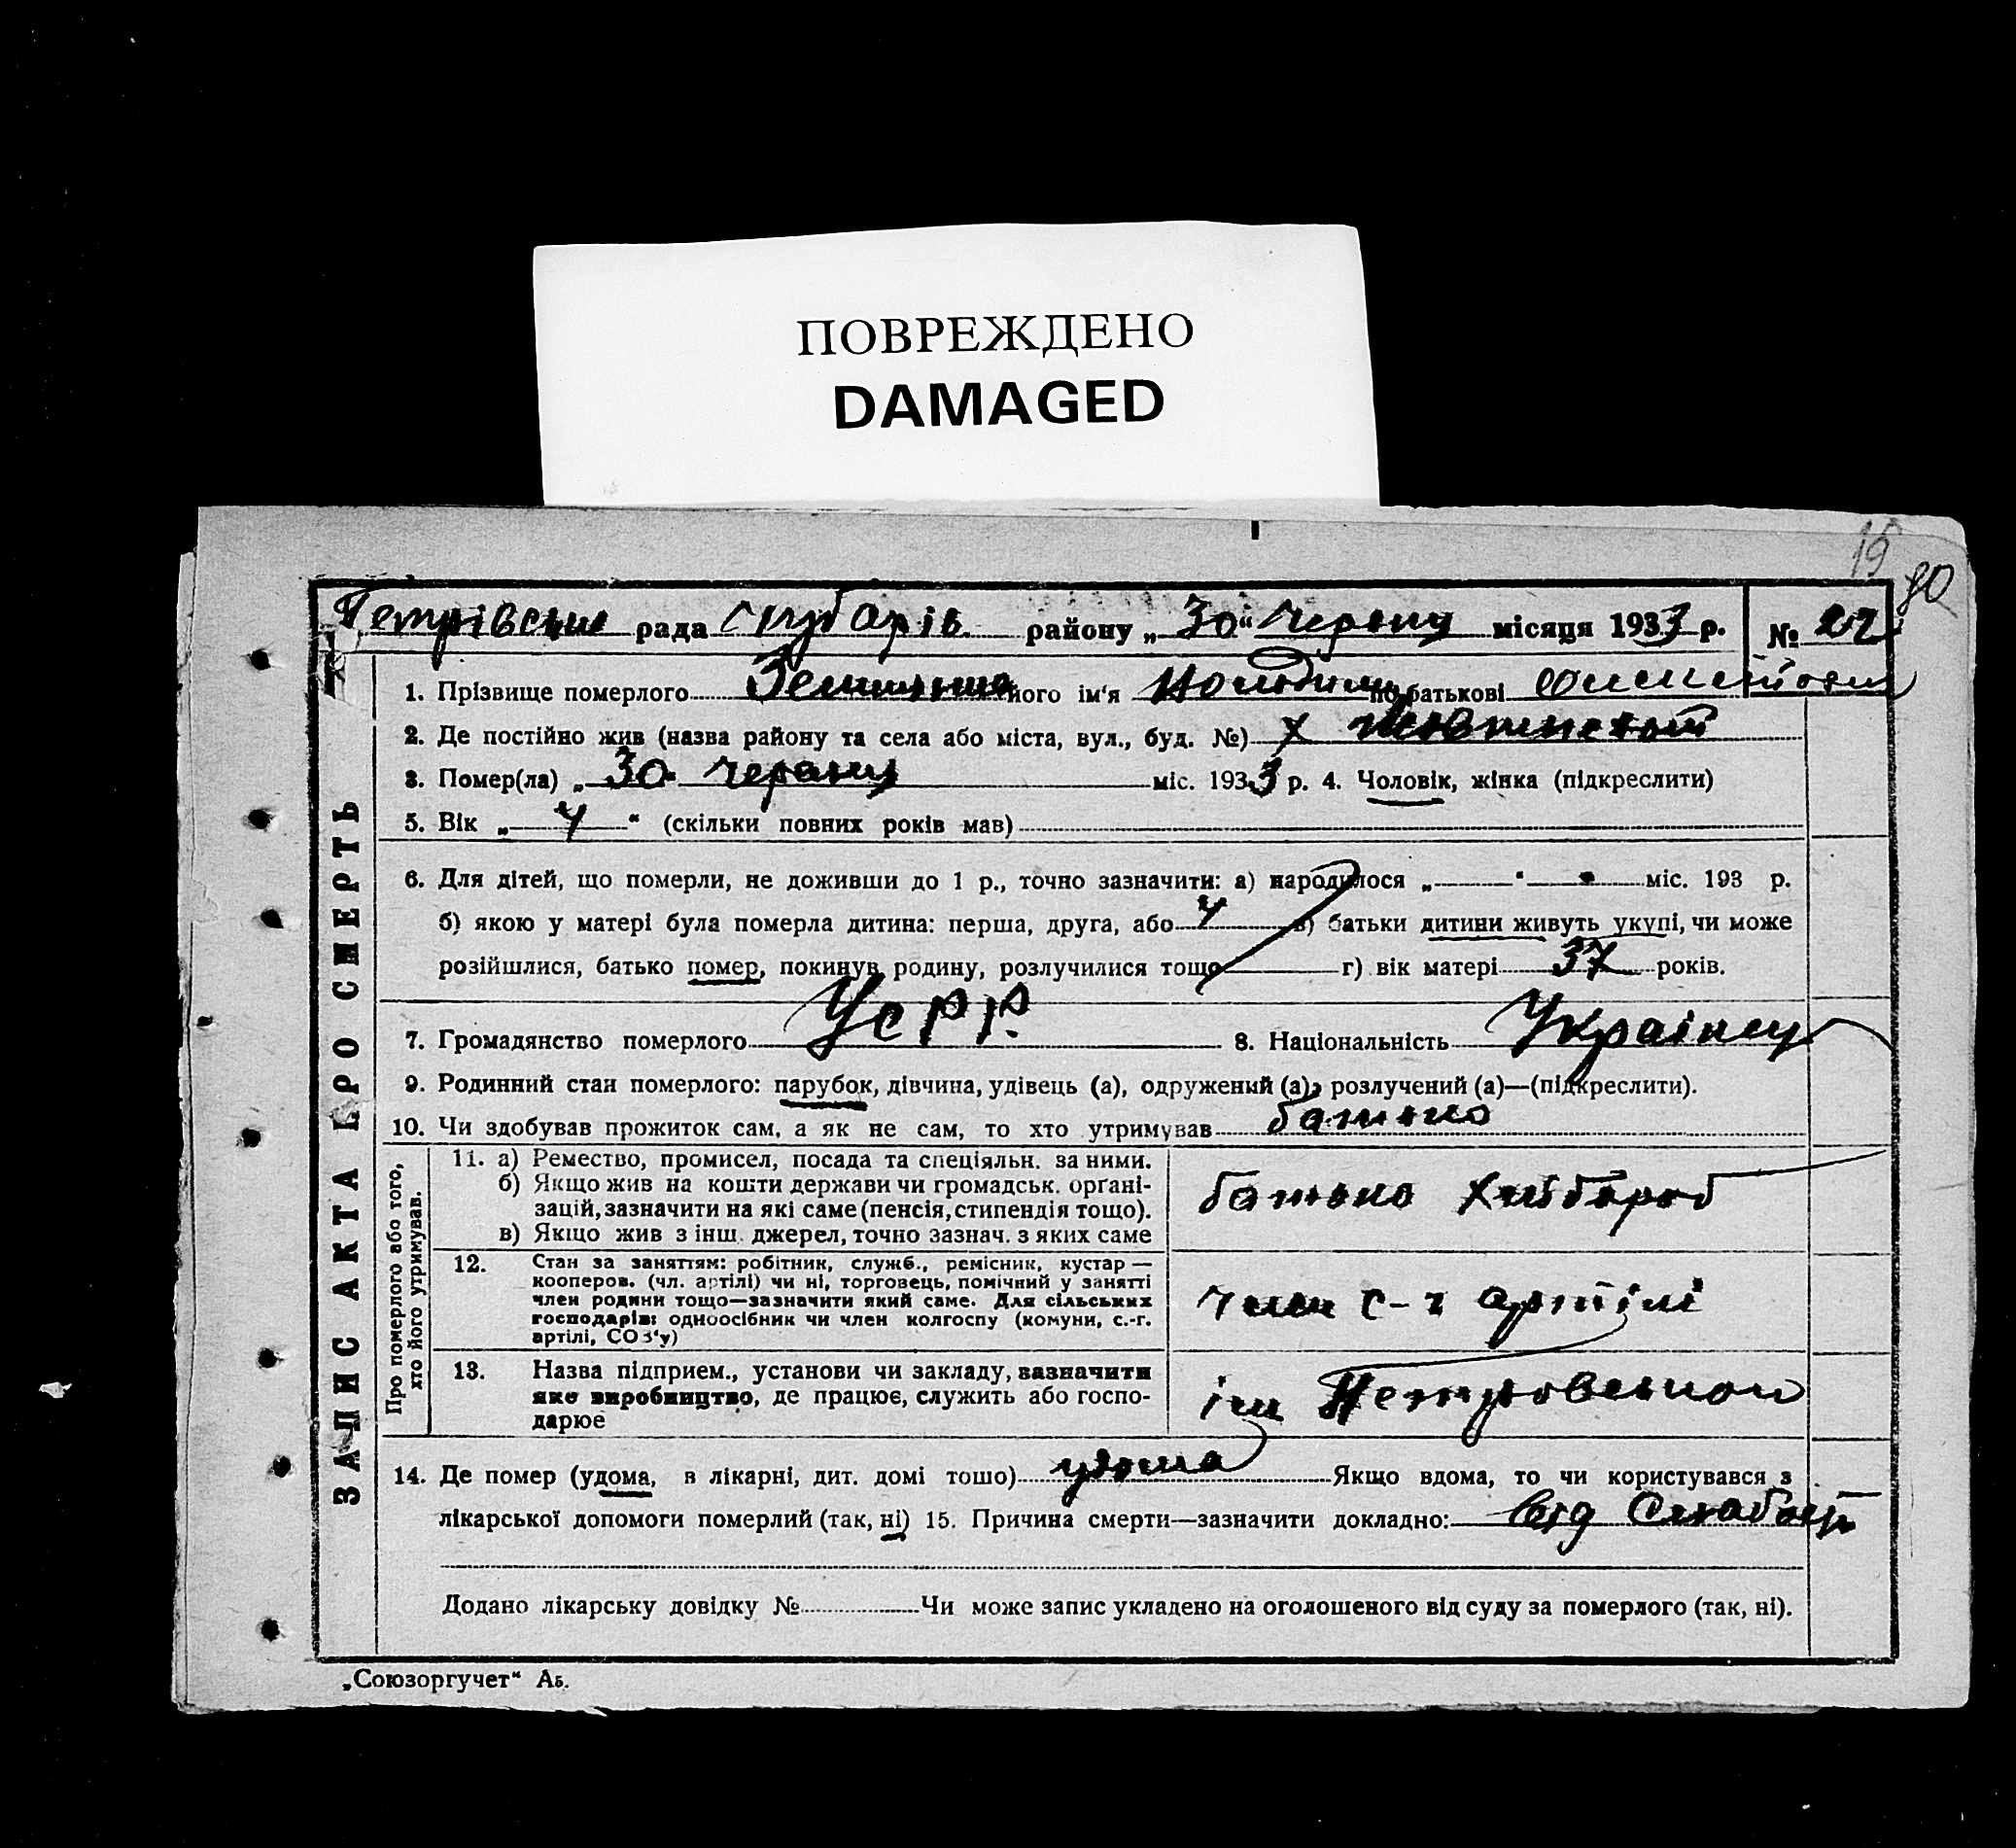 ПОВРЕЖДЕНО
DAMAGED
19
80
рада району „30“ червня місяця 1933 р. № 22
1. Прізвище померлого його ім‘я по батькові
2. Де постійно жив (назва району та села або міста, вул., буд. №) х
3. Помер(ла) „30 червня міс. 1933 р. 4. Чоловік, жінка (підкреслити)
5. Вік „4“ (скільки повних років мав)
6. Для дітей, що померли, не доживши до 1 р., точно зазначити: а) народилося „ “ міс. 193 р.
б) якою у матері була померла дитина: перша, друга, або 4 в) батьки дитини живуть укупі, чи може
розійшлися, батько помер, покинув родину, розлучилися тощо г) вік матері 37 років.
7. Громадянство померлого УСРР. 8. Національність Українец
9. Родинний стан померлого: парубок, дівчина, удівець (а), одружений (а), розлучений (а)—(підкреслити).
10. Чи здобував прожиток сам, а як не сам, то хто утримував батько
ЗАПИС АКТА ПРО СМЕРТЬ
Про померлого або того, хто його утримував.
11. а) Ремество, промисел, посада та спеціяльн. за ними.
б) Якщо жив на кошти держави чи громадськ. орґані-
зацій, зазначити на які саме (пенсія, стипендія тощо).
в) Якщо жив з інш. джерел, точно зазнач. з яких саме
батько хлібороб
12. Стан за заняттям: робітник, служб., ремісник, кустар —
кооперов. (чл. артілі) чи ні, торговець, помічний у занятті
член родини тощо—зазначити який саме. Для сільських
господарів: одноосібник чи член колгоспу (комуни, с.-г.
артілі, СОЗ‘у)
член с-г артілі
13. Назва підприєм., установи чи закладу, зазначити
яке виробництво, де працює, служить або госпо-
дарює
ім Петровского
14. Де помер (удома, в лікарні, дит. домі тошо) удома Якщо вдома, то чи користувався з
лікарської допомоги померлий (так, ні) 15. Причина смерти—зазначити докладно: від
Додано лікарську довідку № Чи може запис укладено на оголошеного від суду за померлого (так, ні).
„Союзоргучет“ Аб.